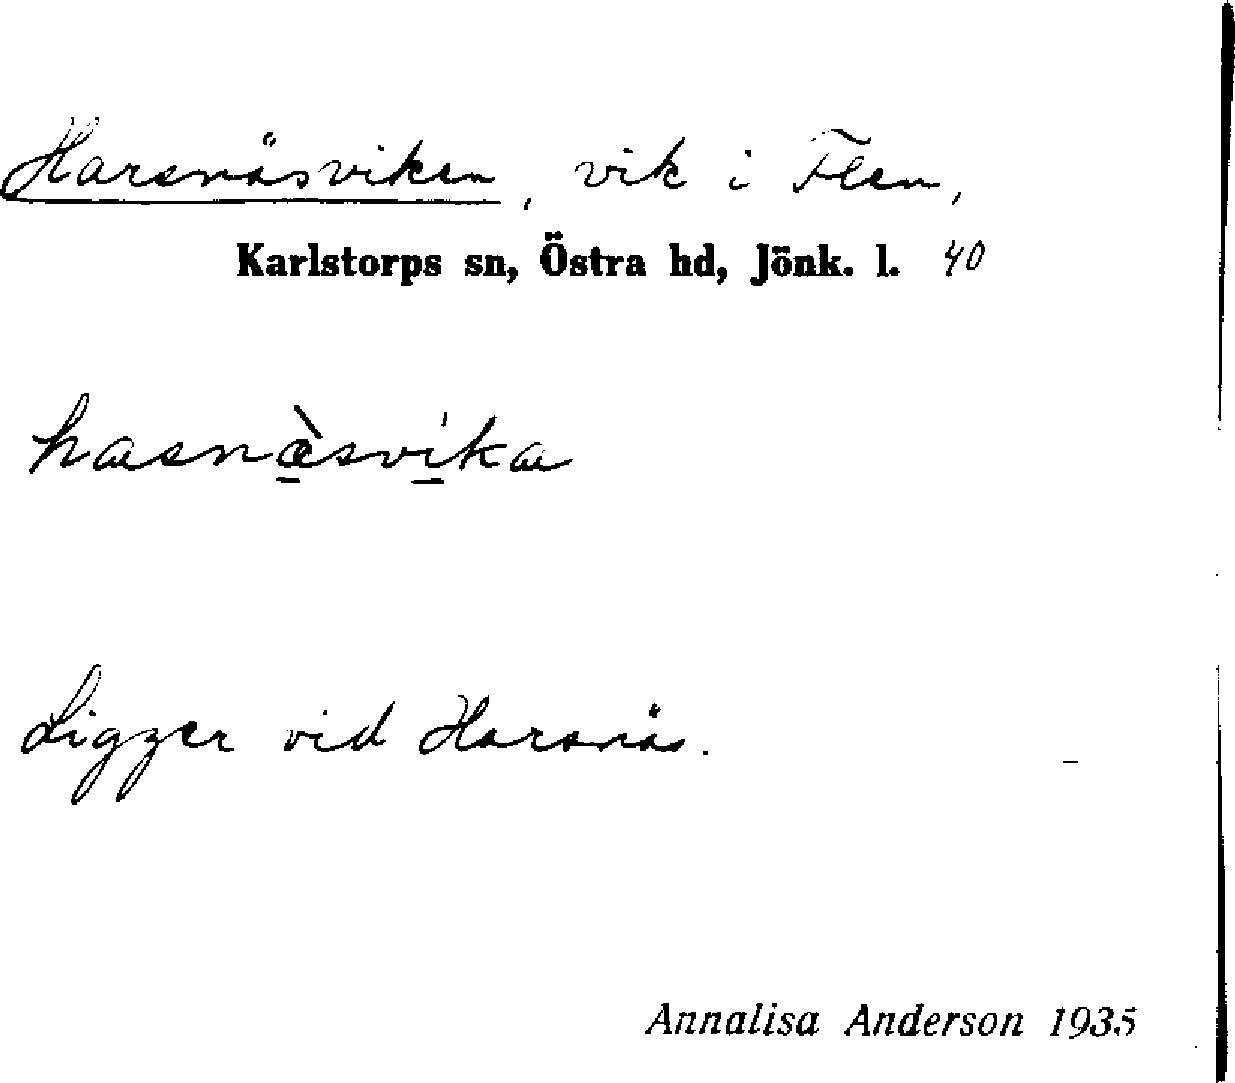 Harsnäsviken, vik i Flen,
Karlstorps sn, Östra hd, Jönk. l. 40
hasnæ̠̀svi̠̍ka
Ligger vid Harsnäs.
Annalisa Anderson 1935